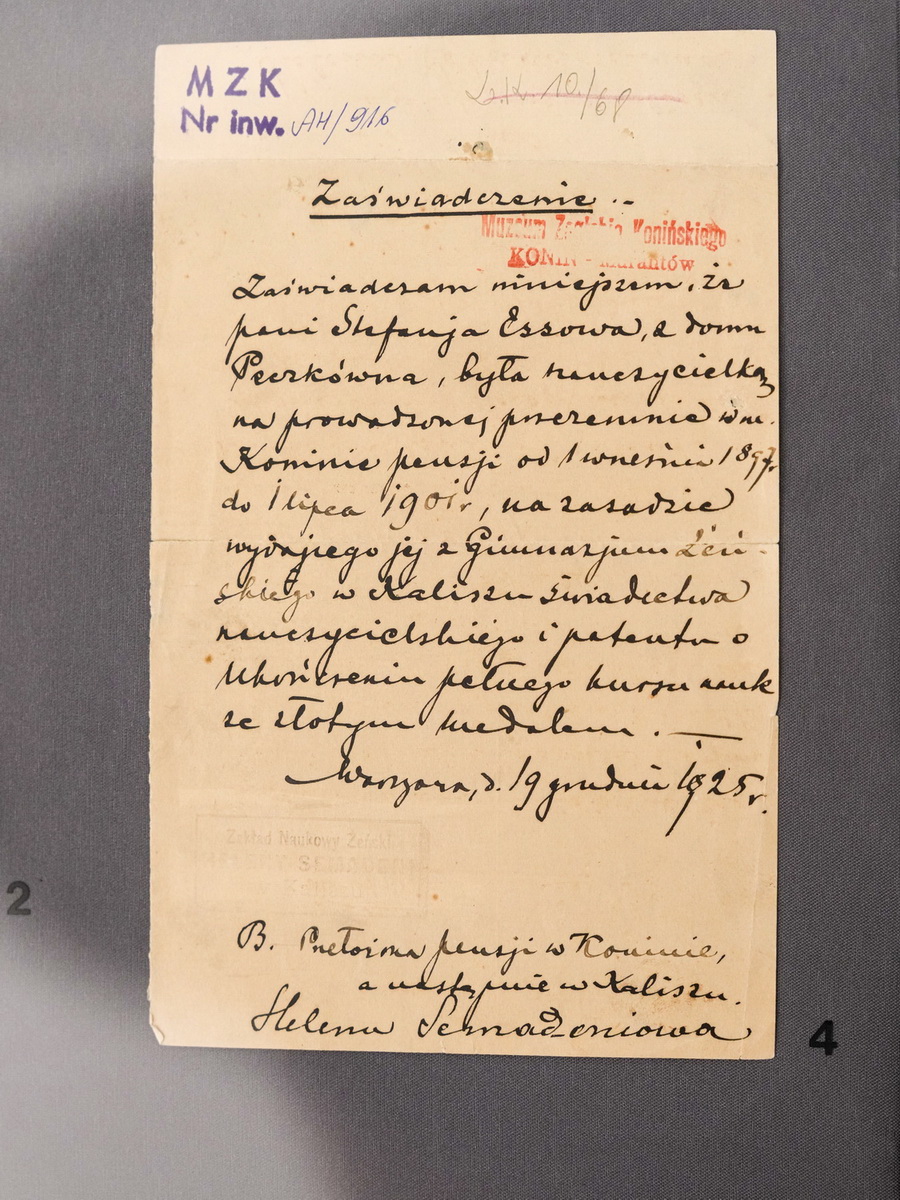 MZK
Nr inw. AH/916
10/68
Zaświadczenie
Muzeum Zagłębia Konińskiego
KONIN - Marantów
Zaświadczam niniejszem, że
pani Stefanja Essowa, z domu
Peczkówna, była nauczycielką
na prowadzonej przezemnie w m.
Koninie pensji od 1 września 1897 r.
do 1 lipca 1901 r, na zasadzie
wydanego jej z Gimnazjum Żeń-
skiego w Kaliszu świadectwa
nauczycielskiego i patentu o
ukończeniu pełnego kursu nauk
ze złotym medalem. —
Warszawa, d. 19 grudnia 1925 r.
Zakład Naukowy Żeński
HELENY SEMADENI
2
B. Przełożona pensji w Koninie,
a następnie w Kaliszu.
Helena Semadeniowa
4